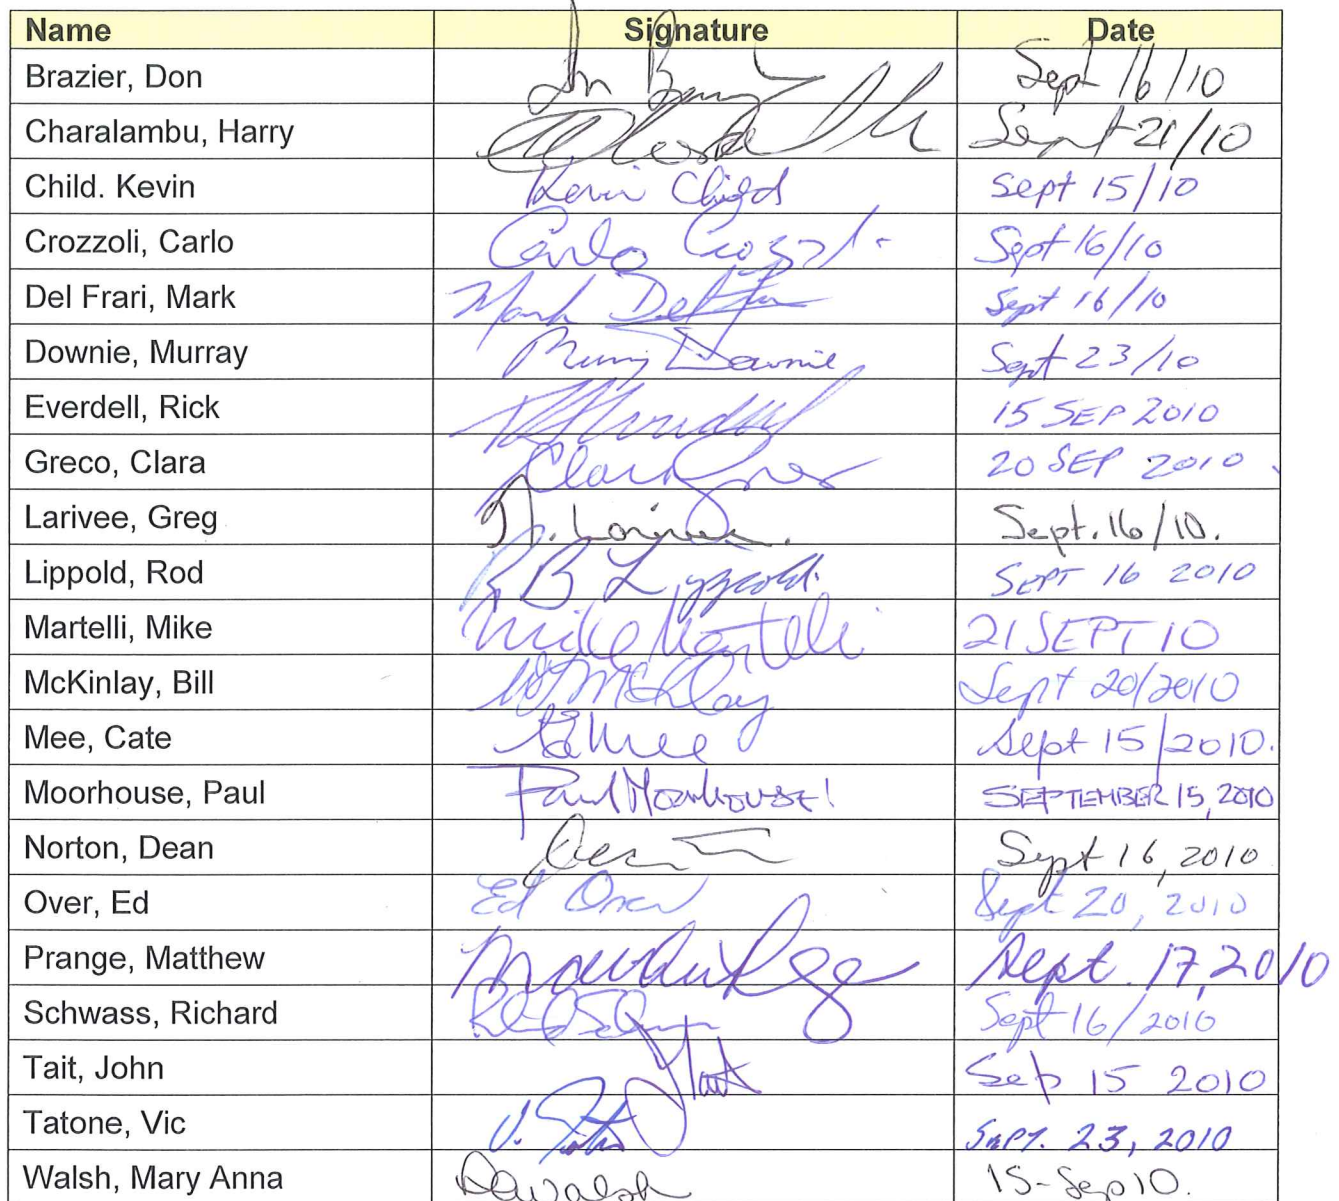 Name Signature Date
Brazier, Don Sept 16/10
Charalambu, Harry Sept 21/10
Child. Kevin Kevin Childs Sept 15/10
Crozzoli, Carlo Carlo Sept 16/10
Del Frari, Mark Mark Sept 16/10
Downie, Murray Downie Sept 23/10
Everdell, Rick 15 SEP 2010
Greco, Clara Clara 20 SEP 2010
Larivee, Greg Sept. 16/10.
Lippold, Rod RB Lippold. SEPT 16 2010
Martelli, Mike Mike Martelli 21 SEPT 10
McKinlay, Bill Sept 20/2010
Mee, Cate Mee Sept 15/2010.
Moorhouse, Paul Paul Moorhouse SEPTEMBER 15, 2010
Norton, Dean Sept 16, 2010
Over, Ed Ed Over Sept 20, 2010
Prange, Matthew Sept. 17, 2010
Schwass, Richard Sept 16/2010
Tait, John Sep 15 2010
Tatone, Vic SEPT. 23, 2010
Walsh, Mary Anna 15-Sep 10.